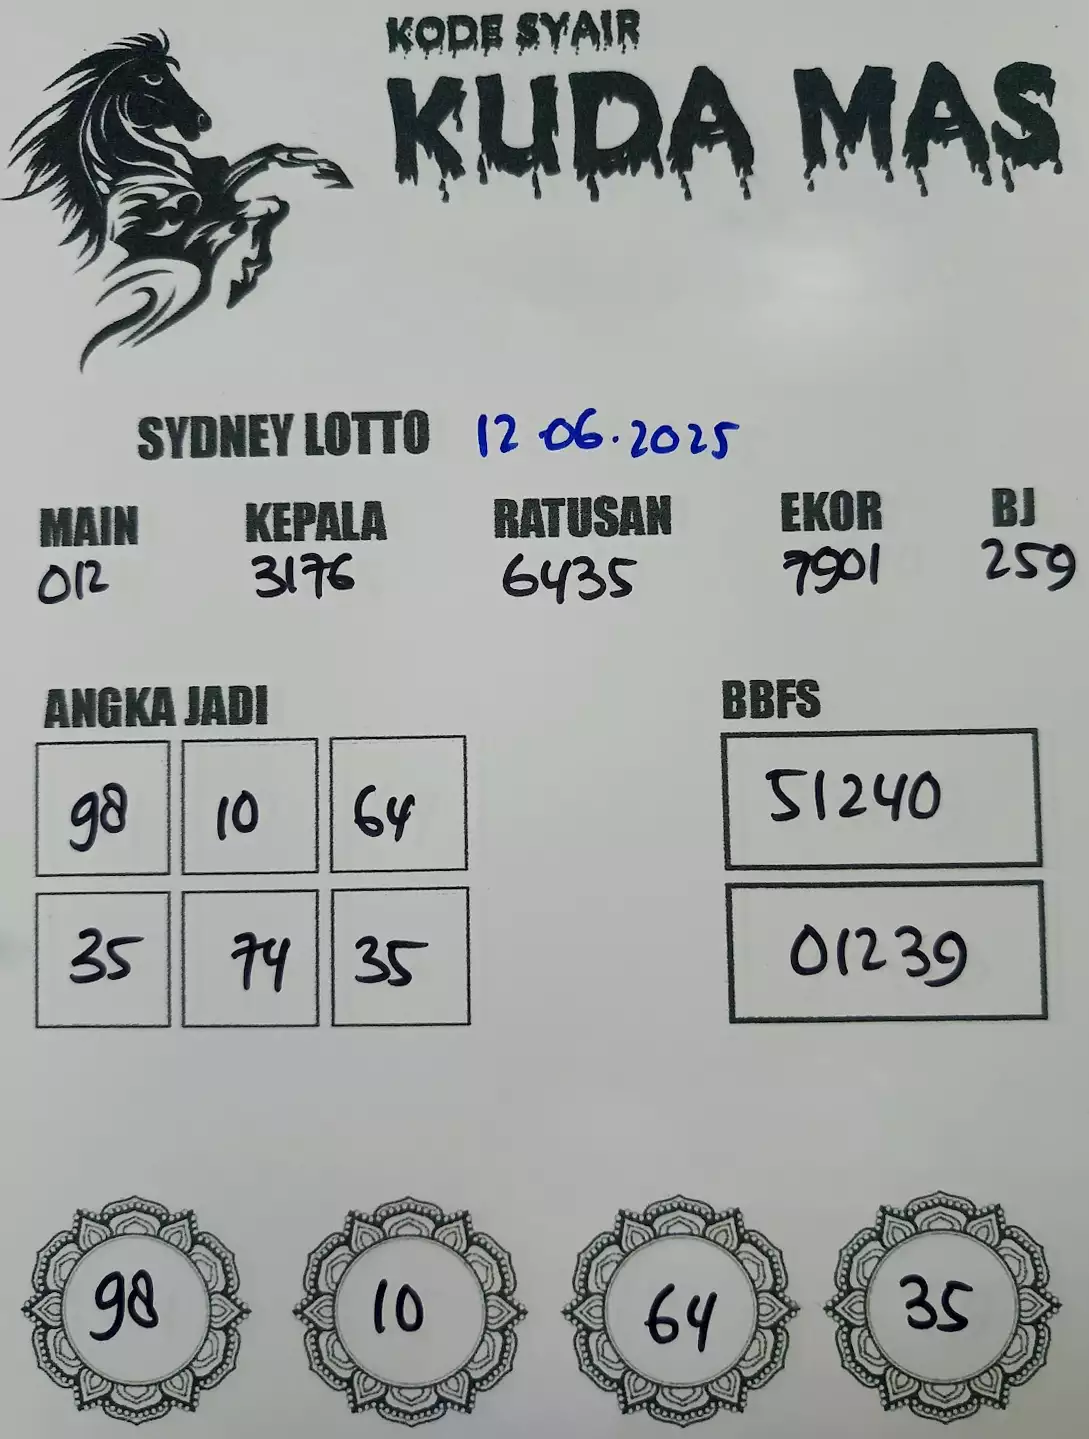 KODE SYAIR
KUDA MAS
SYDNEY LOTTO 12.06.2025
MAIN KEPALA RATUSAN EKOR BJ
012 3176 6435 7901 259
ANGKA JADI BBFS
98 10 64 51240
35 74 35 01239
98 10 64 35